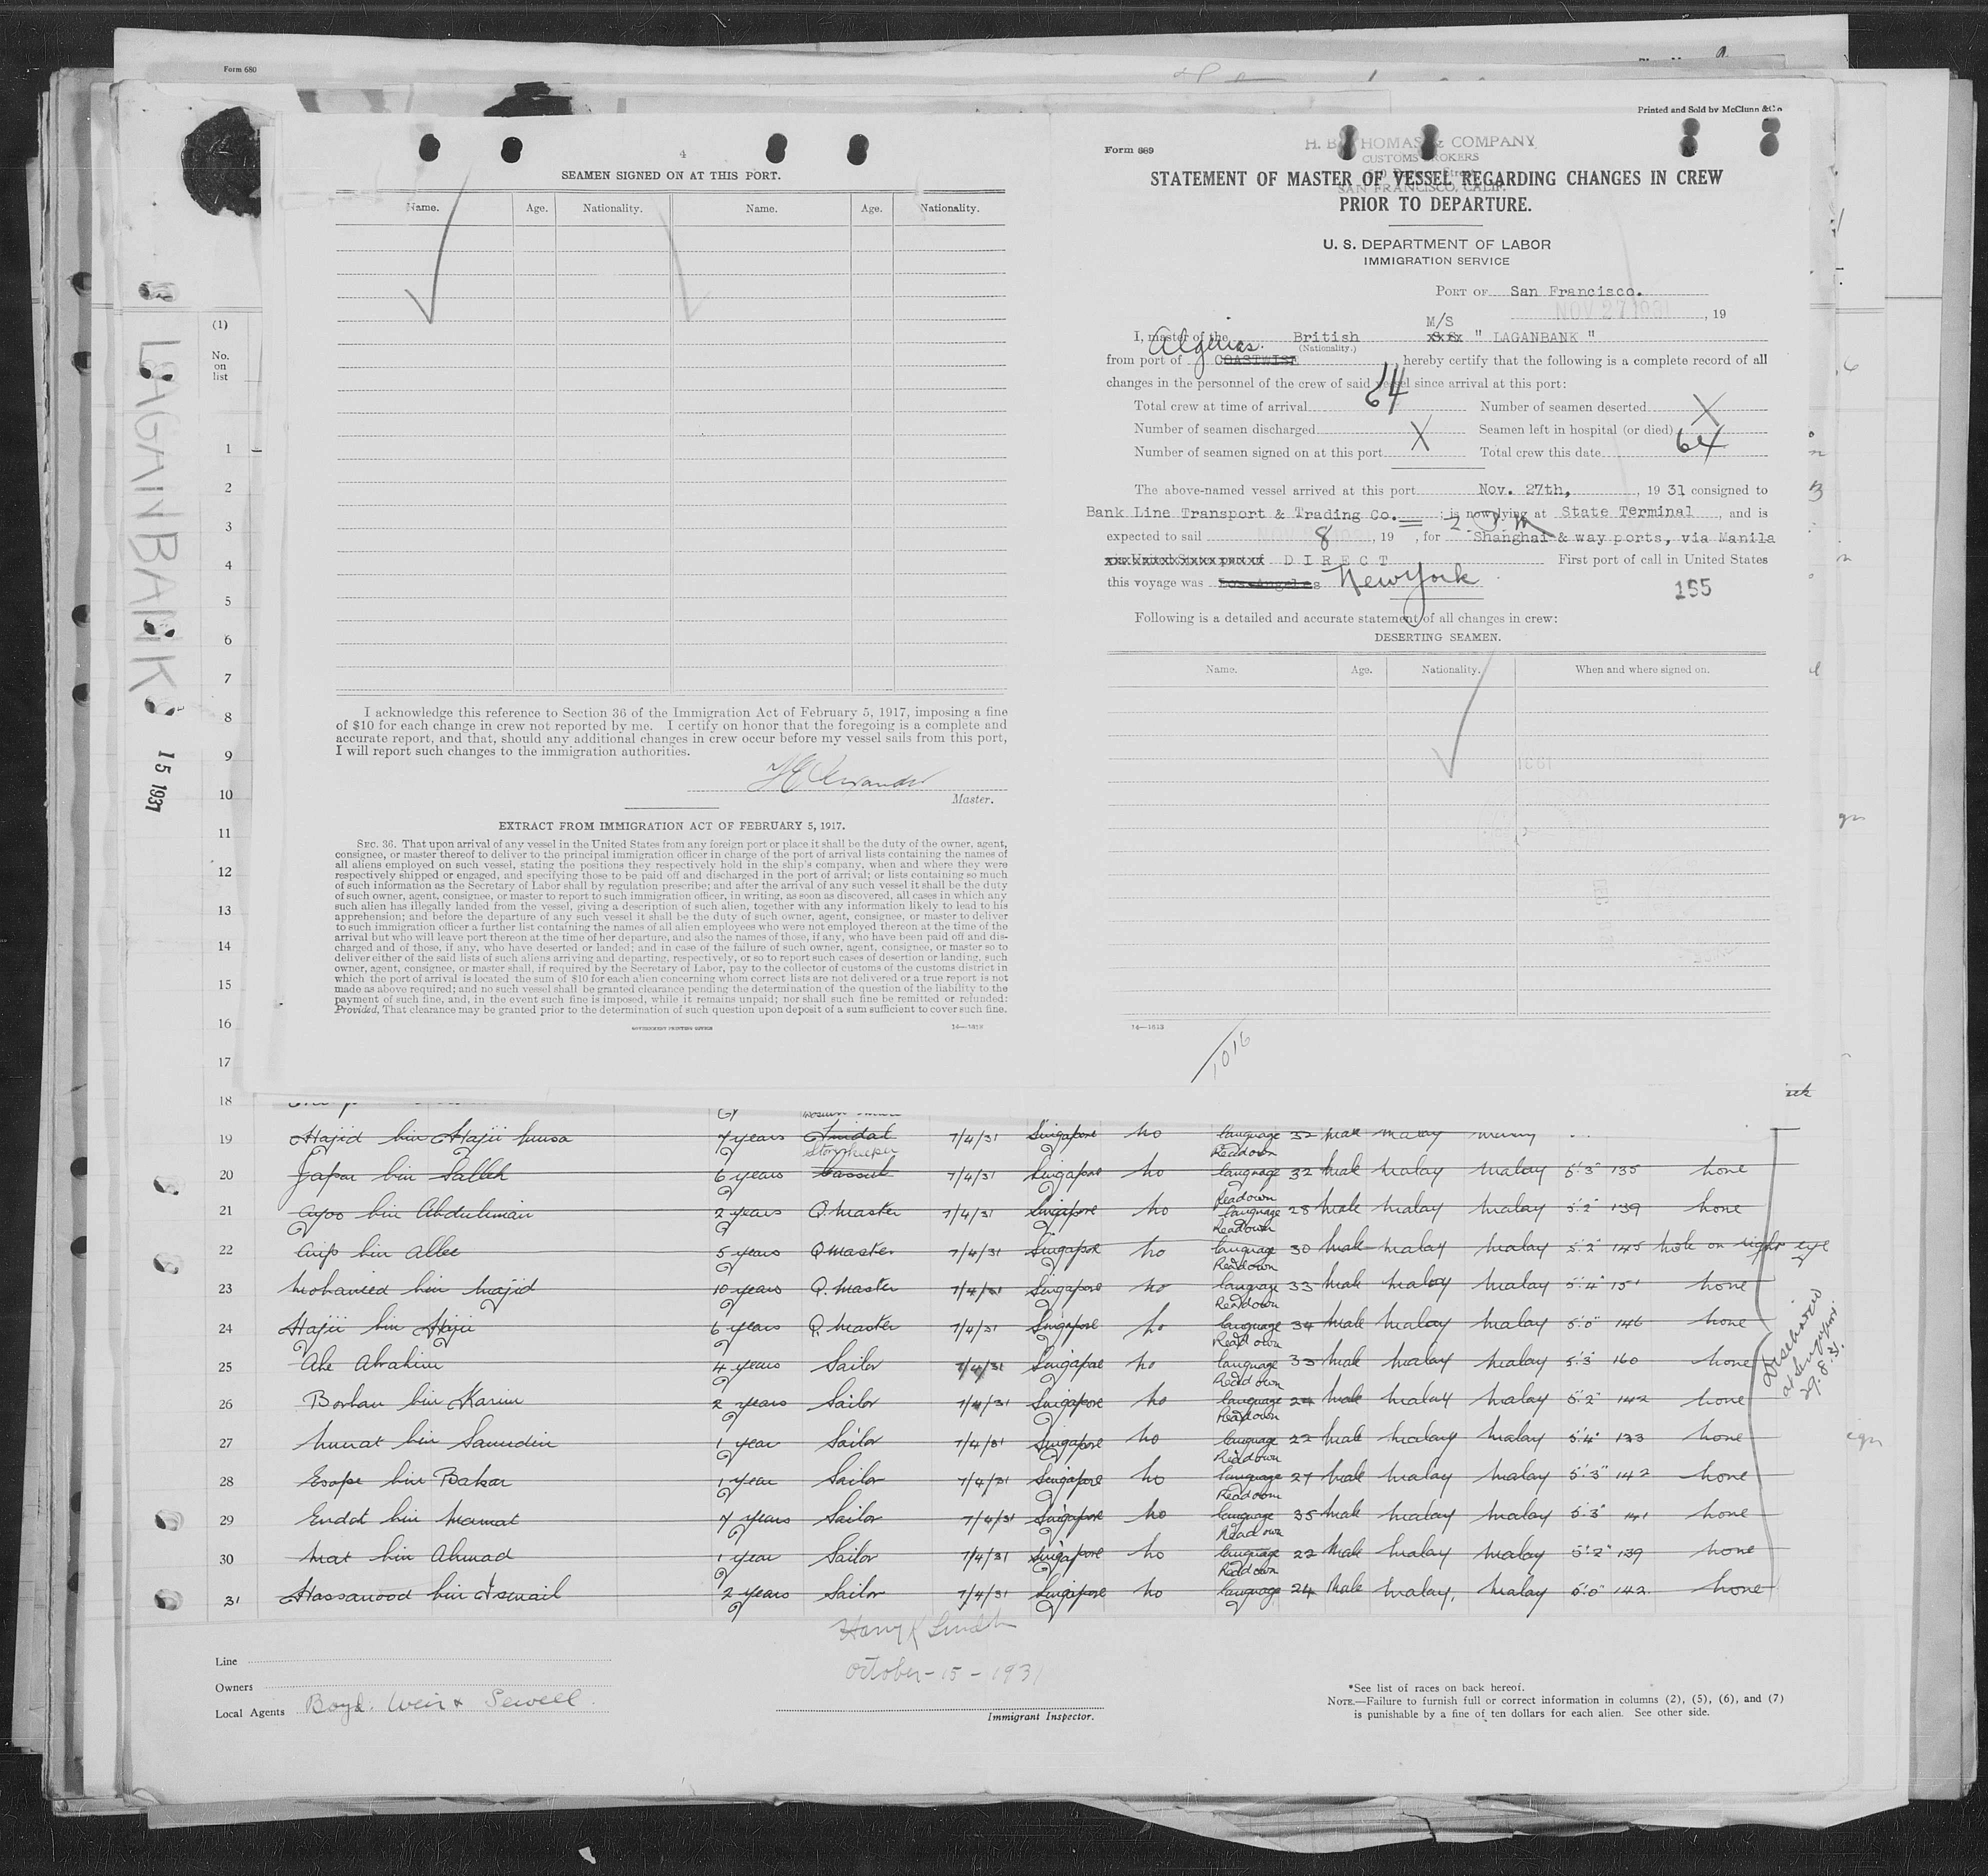 Form 680
Printed and Sold by McClunn & Co
4
SEAMEN SIGNED ON AT THIS PORT.
Name. Age. Nationality. Name. Age. Nationality.
I acknowledge this reference to Section 36 of the Immigration Act of February 5, 1917, imposing a fine
of $10 for each change in crew not reported by me. I certify on honor that the foregoing is a complete and
accurate report, and that, should any additional changes in crew occur before my vessel sails from this port,
I will report such changes to the immigration authorities.
Master.
EXTRACT FROM IMMIGRATION ACT OF FEBRUARY 5, 1917.
SEC. 36. That upon arrival of any vessel in the United States from any foreign port or place it shall be the duty of the owner, agent,
consignee, or master thereof to deliver to the principal immigration officer in charge of the port of arrival lists containing the names of
all aliens employed on such vessel, stating the positions they respectively hold in the ship's company, when and where they were
respectively shipped or engaged, and specifying those to be paid off and discharged in the port of arrival; or lists containing so much
of such information as the Secretary of Labor shall by regulation prescribe; and after the arrival of any such vessel it shall be the duty
of such owner, agent, consignee, or master to report to such immigration officer, in writing, as soon as discovered, all cases in which any
such alien has illegally landed from the vessel, giving a description of such alien, together with any information likely to lead to his
apprehension; and before the departure of any such vessel it shall be the duty of such owner, agent, consignee, or master to deliver
to such immigration officer a further list containing the names of all alien employees who were not employed thereon at the time of the
arrival but who will leave port thereon at the time of her departure, and also the names of those, if any, who have been paid off and dis-
charged and of those, if any, who have deserted or landed; and in case of the failure of such owner, agent, consignee, or master so to
deliver either of the said lists of such aliens arriving and departing, respectively, or so to report such cases of desertion or landing, such
owner, agent, consignee, or master shall, if required by the Secretary of Labor, pay to the collector of customs of the customs district in
which the port of arrival is located the sum of $10 for each alien concerning whom correct lists are not delivered or a true report is not
made as above required; and no such vessel shall be granted clearance pending the determination of the question of the liability to the
payment of such fine, and, in the event such fine is imposed, while it remains unpaid; nor shall such fine be remitted or refunded:
Provided, That clearance may be granted prior to the determination of such question upon deposit of a sum sufficient to cover such fine.
GOVERNMENT PRINTING OFFICE 14—1613
Form 689
H. B. THOMAS & COMPANY
CUSTOMS BROKERS
SAN FRANCISCO, CALIF.
STATEMENT OF MASTER OF VESSEL REGARDING CHANGES IN CREW
PRIOR TO DEPARTURE.
U. S. DEPARTMENT OF LABOR
IMMIGRATION SERVICE
PORT OF San Francisco.
NOV 27 1931, 19
M/S
I, master of the British " LAGANBANK "
(Nationality.)
from port of COASTWISE hereby certify that the following is a complete record of all
changes in the personnel of the crew of said vessel since arrival at this port:
Total crew at time of arrival 64 Number of seamen deserted X
Number of seamen discharged X Seamen left in hospital (or died)
Number of seamen signed on at this port Total crew this date 64
The above-named vessel arrived at this port Nov. 27th, , 19 31 consigned to
Bank Line Transport & Trading Co. ; is now lying at State Terminal , and is
expected to sail 8 , 19 , for Shanghai & way ports, via Manila
DIRECT First port of call in United States
this voyage was Los Angeles New York
155
Following is a detailed and accurate statement of all changes in crew:
DESERTING SEAMEN.
Name. Age. Nationality. When and where signed on.
14—1613
1016
LAGANBANK
15 1931
(1)
No.
on
list
1
2
3
4
5
6
7
8
9
10
11
12
13
14
15
16
17
18
19 Majid bin Hajii Musa 7 years 7/4/31 Singapore no language 32 male malay
20 Japar bin Salleh 6 years Storekeeper Cassab 7/4/31 Singapore no Read own language 32 male malay malay 5'3" 135 none
21 Ayoo bin Abduliman 2 years Q. Master 7/4/31 Singapore no Read own language 28 male malay malay 5'2" 139 none
22 Arip bin Allee 5 years Q Master 7/4/31 Singapore no Read own language 30 male malay malay 5'2" 145 mole on right eye
23 Mohamed bin Majid 10 years Q. Master 7/4/31 Singapore no Read own language 33 male malay malay 5'4" 151 none
24 Hajii bin Hajii 6 years Q. Master 7/4/31 Singapore no Read own language 34 male malay malay 5'0" 146 none
25 Ahe Abrahim 4 years Sailor 7/4/31 Singapore no Read own language 33 male malay malay 5'3" 160 none
26 Borhan bin Karim 2 years Sailor 7/4/31 Singapore no Read own language 24 male malay malay 5'2" 142 none
27 Munat bin Samudin 1 year Sailor 7/4/31 Singapore no Read own language 22 male malay malay 5'4" 133 none
28 Esope bin Bakar 1 year Sailor 7/4/31 Singapore no Read own language 27 male malay malay 5'3" 142 none
29 Endot bin Mamat 7 years Sailor 7/4/31 Singapore no Read own language 35 male malay malay 5'3" 141 none
30 Mat bin Ahmad 1 year Sailor 7/4/31 Singapore no Read own language 22 male malay malay 5'2" 139 none
31 Hassanood bin Ismail 2 years Sailor 7/4/31 Singapore no Read own language 24 male malay, malay 5'0" 142 none
Discharged
at Singapore
29.8.31.
Harry K Smith
October-15-1931
Line
Owners
Local Agents Boyd. Weir & Sewell.
Immigrant Inspector.
*See list of races on back hereof.
NOTE.—Failure to furnish full or correct information in columns (2), (5), (6), and (7)
is punishable by a fine of ten dollars for each alien. See other side.